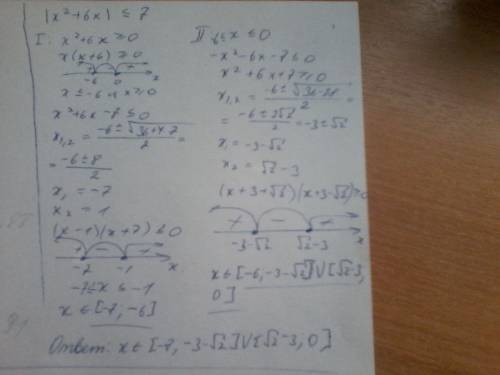 |x²+6x| ≤ 7
I: x²+6x ≥ 0
x(x+6) ≥ 0
+ − +
-6 0 x
x ≤ -6 и x ≥ 0
x²+6x-7 ≤ 0
x₁,₂ = (-6 ± √(36+4·7))/2 =
= (-6 ± 8)/2
x₁ = -7
x₂ = 1
(x-1)(x+7) ≤ 0
+ − +
-7 -1 x
-7 ≤ x ≤ -1
x ∈ [-7; -6]
II -6 ≤ x ≤ 0
-x²-6x-7 ≤ 0
x²+6x+7 ≥ 0
x₁,₂ = (-6 ± √(36-28))/2 =
= (-6 ± 2√2)/2 = -3 ± √2
x₁ = -3-√2
x₂ = √2-3
(x+3+√2)(x+3-√2) ≥ 0
+ − +
-3-√2 √2-3 x
x ∈ [-6, -3-√2] V [√2-3,
0]
Ответ: x ∈ [-7, -3-√2] V [√2-3, 0]